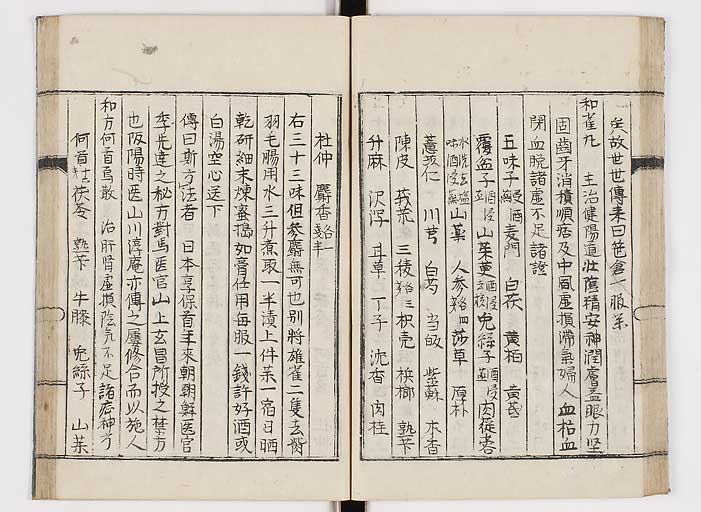 矣故世世傳来曰芭倉一服薬
和雀丸　主治健陽道壮陰精安神潤膚益眼力坚
固齒牙消積順痞及中風虚損滞氣婦人血枯血
閉血脱諸虚不足諸證
五味子酒浸蒸 麦門　白茯　黄栢　黄芪
覆盆子酒浸 山茱萸酒浸 兎絲子酒浸 肉蓯蓉
酒浸 山薬　人参 四 莎草　厚朴
薏苡仁　川芎　白芍　当皈　紫蘇　木香
陳皮　莪荒　三稜 三 枳壳　梹榔　熟芐
升麻　沢瀉　甘草　丁子　沈香　肉桂
杜仲　麝香 半
右三十三味但参麝無可也别將雄雀二隻去觜
羽毛腸用水三升煮取一半漬上件薬一宿日晒
乾研細末煉蜜搗如膏任用每服一錢許好酒或
白湯空心送下
傳曰斯方法者　日本享保首年來朝朝鮮医官
李先達之秘方對馬医官山上玄昌所授之禁方
也阪陽時医山川淳庵亦傳之屢修合而以施人
和方何首烏散　治肝腎虚損陰氣不足諸症神方
何首 茯苓　熟芐　牛膝　兎絲子　山茱